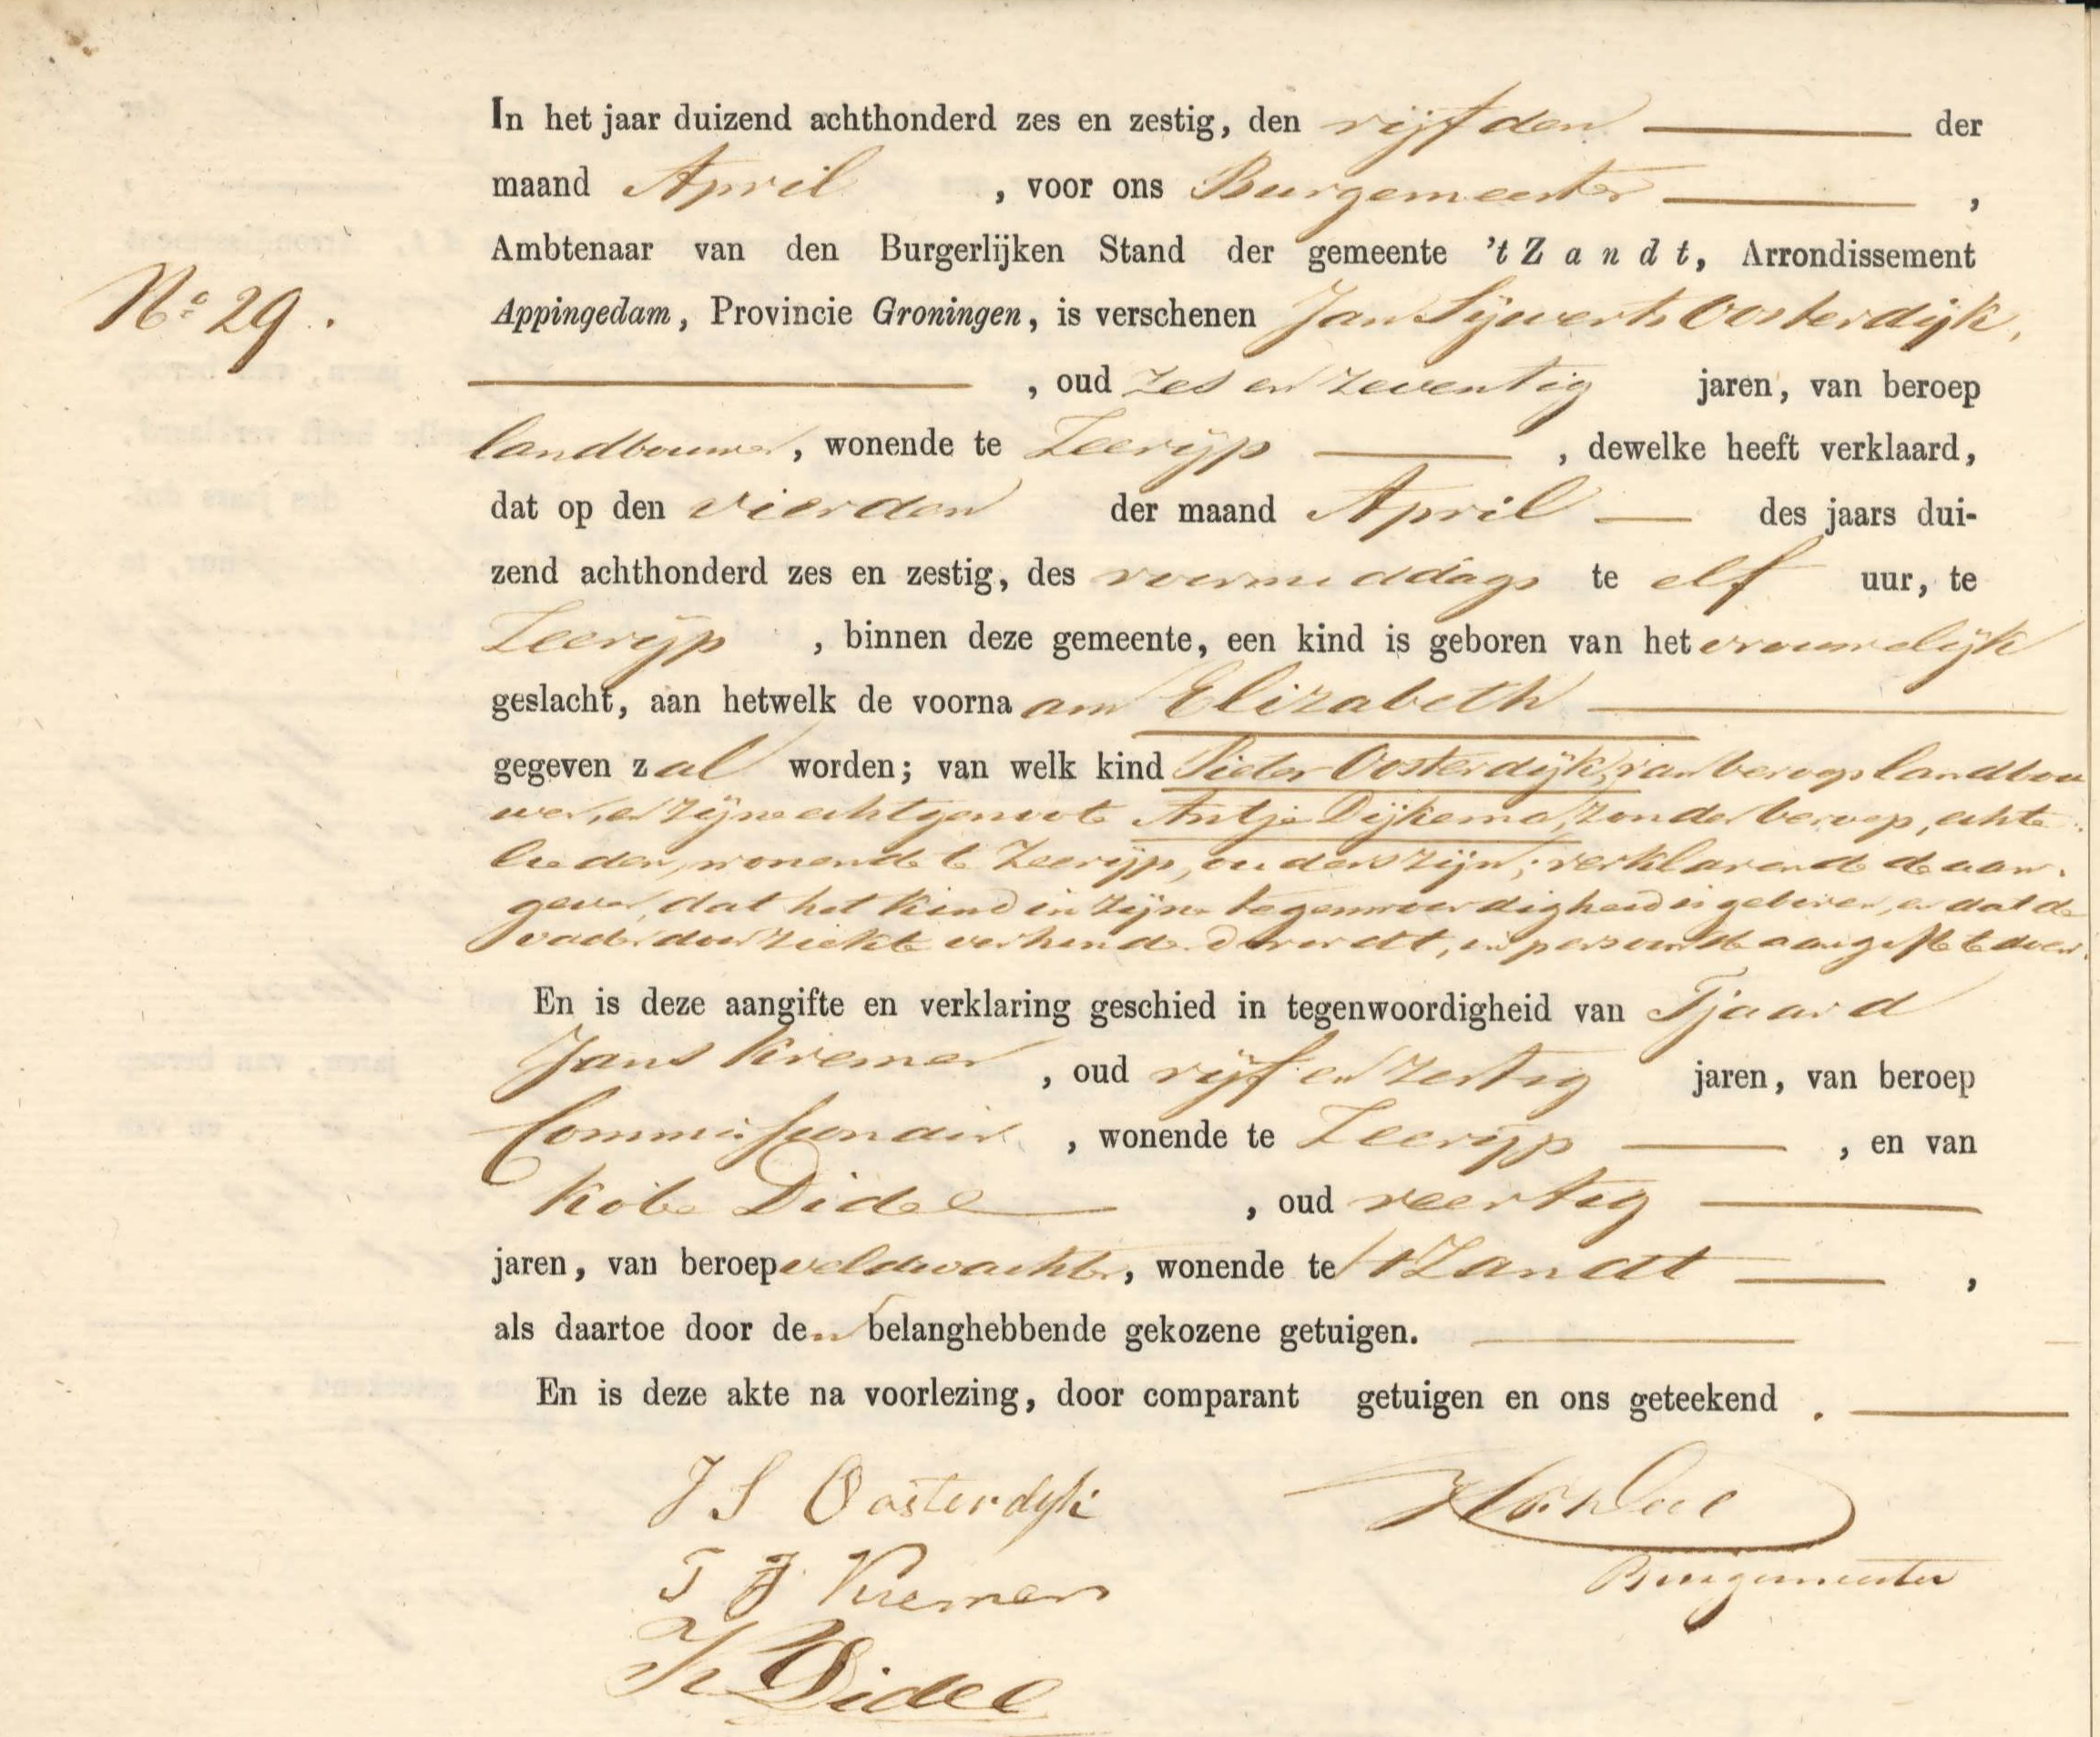 In het jaar duizend achthonderd zes en zestig, den vijfden der
maand April , voor ons Burgemeester ,
Ambtenaar van den Burgerlijken Stand der gemeente 't Zandt, Arrondissement
No 29.
Appingedam, Provincie Groningen, is verschenen Jan Sijwerts Oosterdijk,
, oud zes en zeventig jaren, van beroep
landbouwer, wonende te Zeerijp , dewelke heeft verklaard,
dat op den vierden der maand April des jaars dui-
zend achthonderd zes en zestig, des voormiddags te elf uur, te
Zeerijp , binnen deze gemeente, een kind is geboren van het vrouwelijk
geslacht, aan hetwelk de voornaam Elizabeth
gegeven zal worden; van welk kind Pieter Oosterdijk, van beroep landbou
wer, en zijne echtgenoote Antje Dijkema, zonder beroep, echte
lieden, wonende te Zeerijp, ouders zijn; verklarende de aan-
gever, dat het kind in zijne tegenwoordigheid is geboren, en dat de
vader door ziekte verhinderd wordt, in persoon de aangifte te doen.
En is deze aangifte en verklaring geschied in tegenwoordigheid van Tjaard
Jans Kremer , oud vijf en zestig jaren, van beroep
Commissionair , wonende te Zeerijp , en van
Kobe Didel , oud veertig
jaren, van beroep veldwachter, wonende te 't Zandt ,
als daartoe door den belanghebbende gekozene getuigen.
En is deze akte na voorlezing, door comparant getuigen en ons geteekend .
J S Oosterdijk
T J Kremer
Burgemeester
K Didel